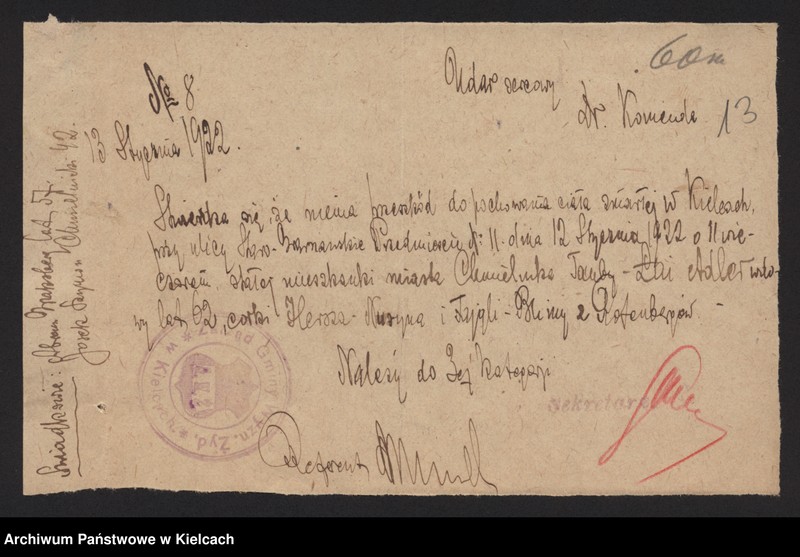 60 m
Udar sercowy
Dr. Komenda 13
№ 8
13 Stycznia 1922.
Stwierdza się że niema przeszkód do pochowania ciała zmarłej w Kielcach,
przy ulicy Staro-Warszawskie Przedmieście № 11 dnia 12 Stycznia 1922 o 11 wie-
czorem, stałej mieszkanki miasta Chmielnika Taube-Łai Adler wdo-
wy lat 62, córki Hersza-Nusyna i Fajgli-Blimy z Rotenbergów. -
Należy do 3ej kategorji
Sekretarz
Referent
w Kielcach Gminy Wyzn. Żyd.
Świadkowie: lat 57.
Josek Chmielnicki 42.
Archiwum Państwowe w Kielcach